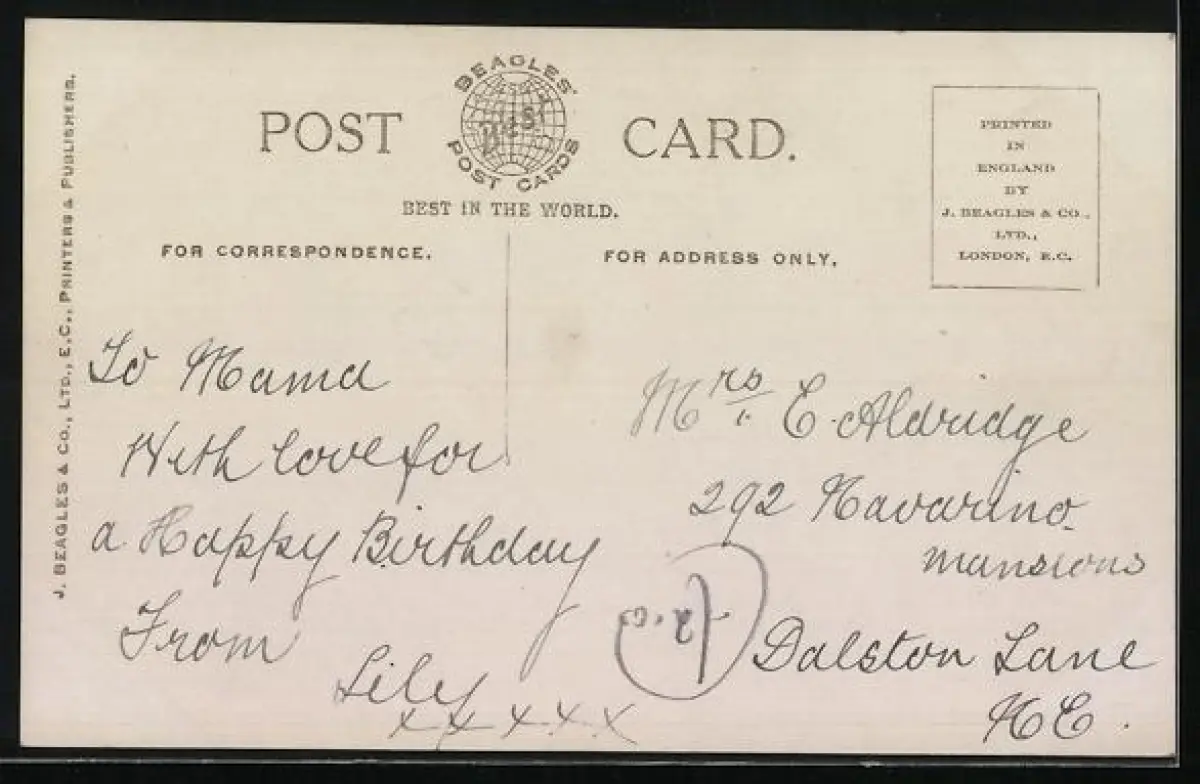 BEAGLES'
POST CARDS
POST CARD.
BEST IN THE WORLD.
FOR CORRESPONDENCE.
FOR ADDRESS ONLY.
PRINTED
IN
ENGLAND
BY
J. BEAGLES & CO.,
LTD.,
LONDON, E.C.
J. BEAGLES & CO., LTD., E.C., PRINTERS & PUBLISHERS.
To Mama
With love for
a Happy Birthday
From
Lily
x x x x x
Mrs. E. Aldridge
292 Navarino
mansions
Dalston Lane
N E.